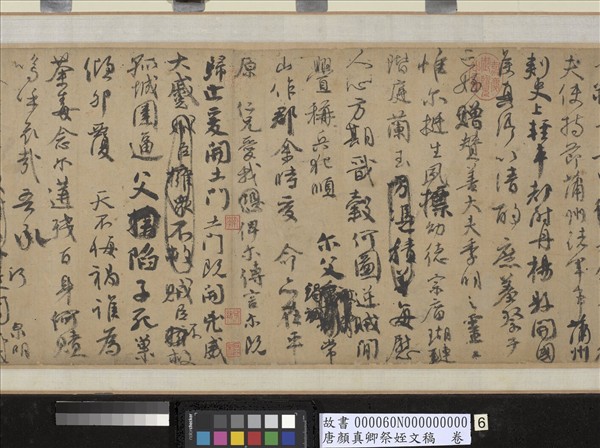 夫使持節蒲州諸軍事蒲州
刺史上輕車都尉丹楊縣開國
侯真卿以清酌庶羞祭于
亡姪贈贊善大夫季明之靈曰
惟爾挺生夙標幼德宗廟瑚璉
階庭蘭玉方憑積善每慰
人心方期戩穀何圖逆賊閒
釁稱兵犯順爾父竭誠常
山作郡余時受命亦在平
原仁兄愛我俾爾傳言爾既
歸止爰開土門土門既開兇威
大蹙賊臣擁眾不救賊臣不救
孤城圍逼父陷子死巢
傾卵覆天不悔禍誰為
荼毒念爾遘殘百身何贖
嗚乎哀哉吾承
泉明
故書 000060N000000000
唐顏真卿祭姪文稿 卷
6